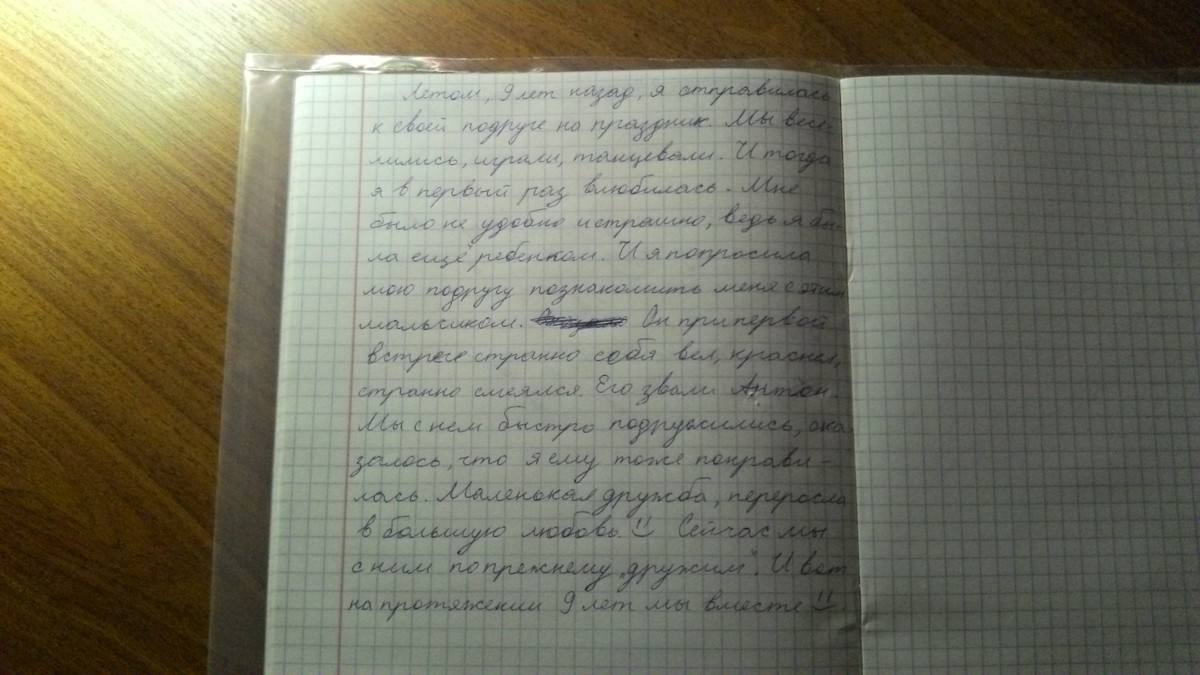 Летом, 9 лет назад, я отправилась
к своей подруге на праздник. Мы весе-
лились, играли, танцевали. И тогда
я в первый раз влюбилась. Мне
было не удобно и страшно, ведь я бы-
ла ещё ребенком. И я попросила
мою подругу познакомить меня с этим
мальчиком. Он при первой
встрече странно себя вел, краснел,
странно смеялся. Его звали Антон.
Мы с нем быстро подружились, ока
залось, что я ему тоже понрави-
лась. Маленькая дружба, переросла
в большую любовь. Сейчас мы
с ним по прежнему "дружим". И вот
на протяжении 9 лет мы вместе